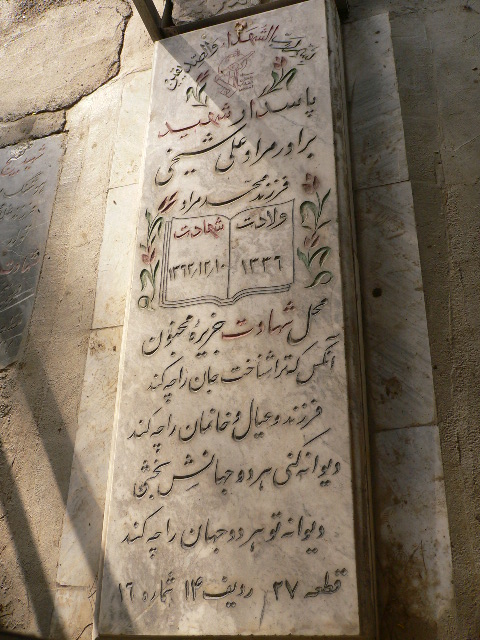 بسم رب الشهداء والصدیقین
پاسدار شهید
برادر مراد علی شیخی
فرزند محمد مراد
ولادت
شهادت
۱۳۳۶
۱۳۶۲/۱۲/۱۰
محل شهادت جزیره مجنون
آنکس که ترا شناخت جان را چه کند
فرزند و عیال و خانمان را چه کند
دیوانه کنی هر دو جهانش بخشی
دیوانه تو هر دو جهان را چه کند
قطعه ۲۷ ردیف ۱۴ شماره ۱۶